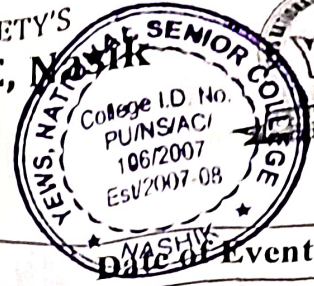 ETY'S
, Nasik
YEWS, NATIONAL SENIOR COLLEGE
College I.D. No.
PU/NS/AC/
106/2007
Est/2007-08
★ NASHIK ★
Date of Event